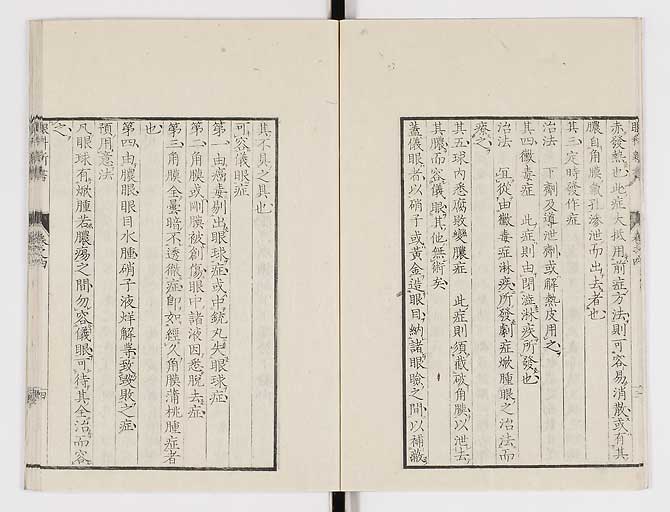 赤發熱也此症大抵用前症方法則可容易消散或有其
膿自角膜氣孔滲泄而出去者也
其三定時發作症
治法 下劑及導泄劑或解熱皮用之
其四黴毒症 此症則由閉澁淋疾所發也
治法 宜從由黴毒症淋疾所發劇症焮腫眼之治法而
療之
其五球內悉腐敗變膿症 此症則須截破角膜以泄去
其膿而容儀眼其他無術矣
蓋儀眼者以硝子或黃金造眼目納諸眼瞼之間以補敝
其不具之具也
可容儀眼症
第一由癌毒剔出眼球症或中銃丸失眼球症
第二角膜或剛膜被創傷眼中諸液因悉脫去症
第三角膜全曇暗不透徹症即如經久角膜蒲桃腫症者
也
第四由膿眼眼目水腫硝子液烊解業致毀敗之症
預用意法
凡眼球有焮腫若膿瘍之間勿容儀眼可待其全治而容
之
眼科新書 卷之四 四